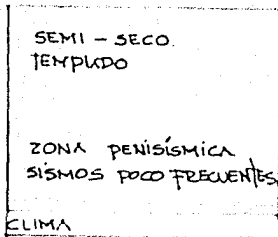 SEMI - SECO.
TEMPLADO
ZONA PENISÍSMICA
SISMOS POCO FRECUENTES
CLIMA